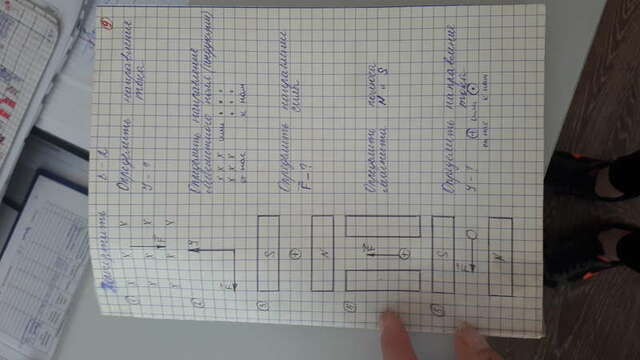 9
Начертить
в - 2
① X X X
X X
X X X
F
Определить направление
тока
У - ?
② У
F
Определить направление
магнитного поля (индукции)
X X X или • • •
X X X • • •
от нас к нам
③ S
⊕
N
Определить направление
силы
F - ?
④ F
⊕
Определить полюса
магнита N и S
⑤ S
F
N
Определить направление
тока
У - ? ⊕ или ⊙
от нас к нам